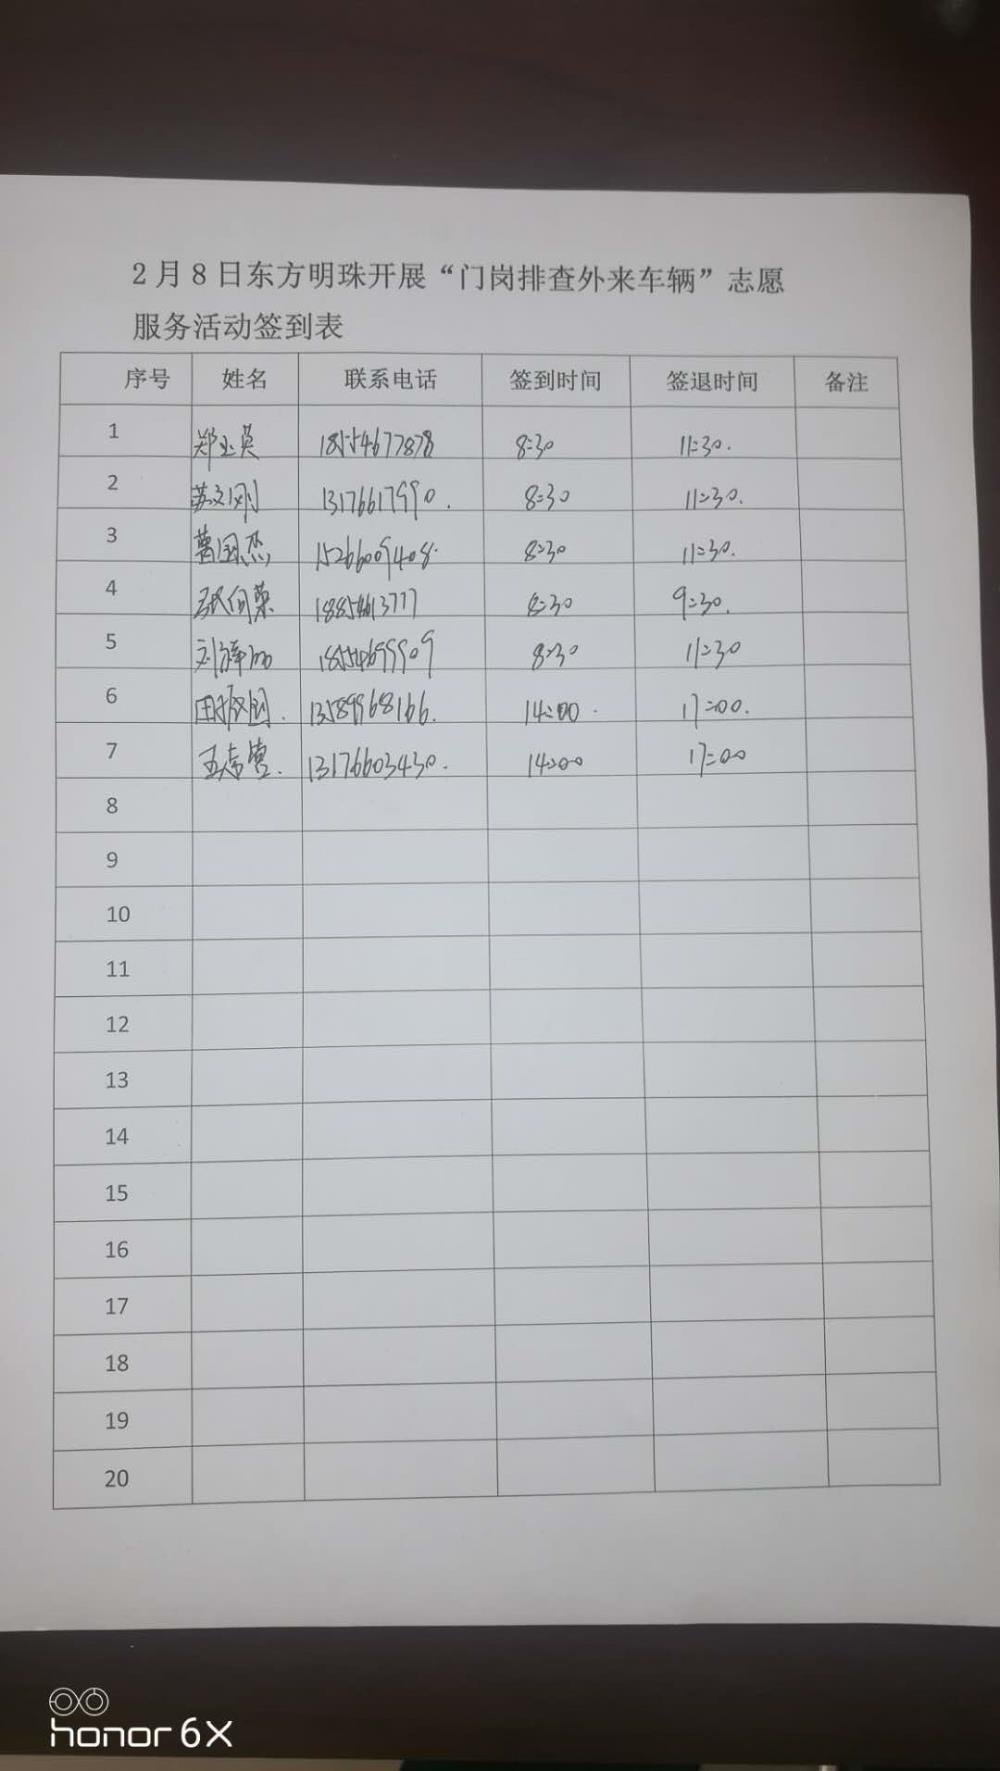 2月8日东方明珠开展“门岗排查外来车辆”志愿
服务活动签到表
序号 姓名 联系电话 签到时间 签退时间 备注
1 郑玉英 18554677878 8:30 11:30.
2 苏文刚 13176617990. 8:30 11:30.
3 曹国杰 15266009408. 8:30 11:30.
4 张向荣 8:30 9:30.
5 18554699909 8:30 11:30
6 田振国. 13589968166. 14:00. 17:00.
7 13176603430. 14:00 17:00
8
9
10
11
12
13
14
15
16
17
18
19
20
honor 6X